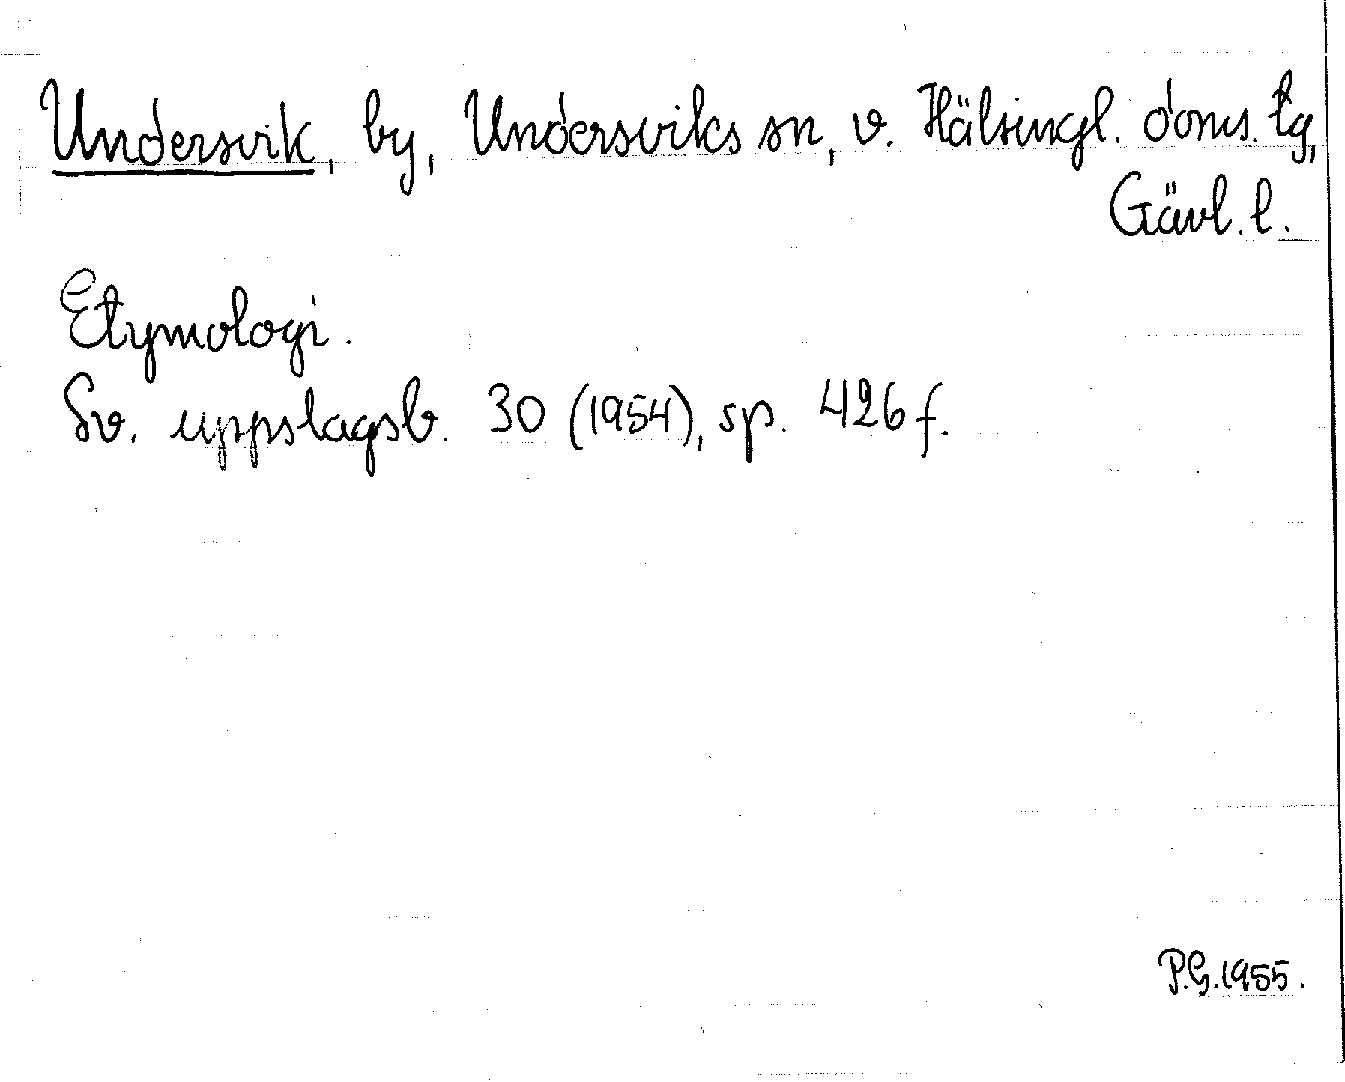 Undersvik, by, Undersviks sn, v. Hälsingl. doms. tg,
Gävl. l.
Etymologi.
Sv. uppslagsb. 30 (1954), sp. 426 f.
P.G. 1955.